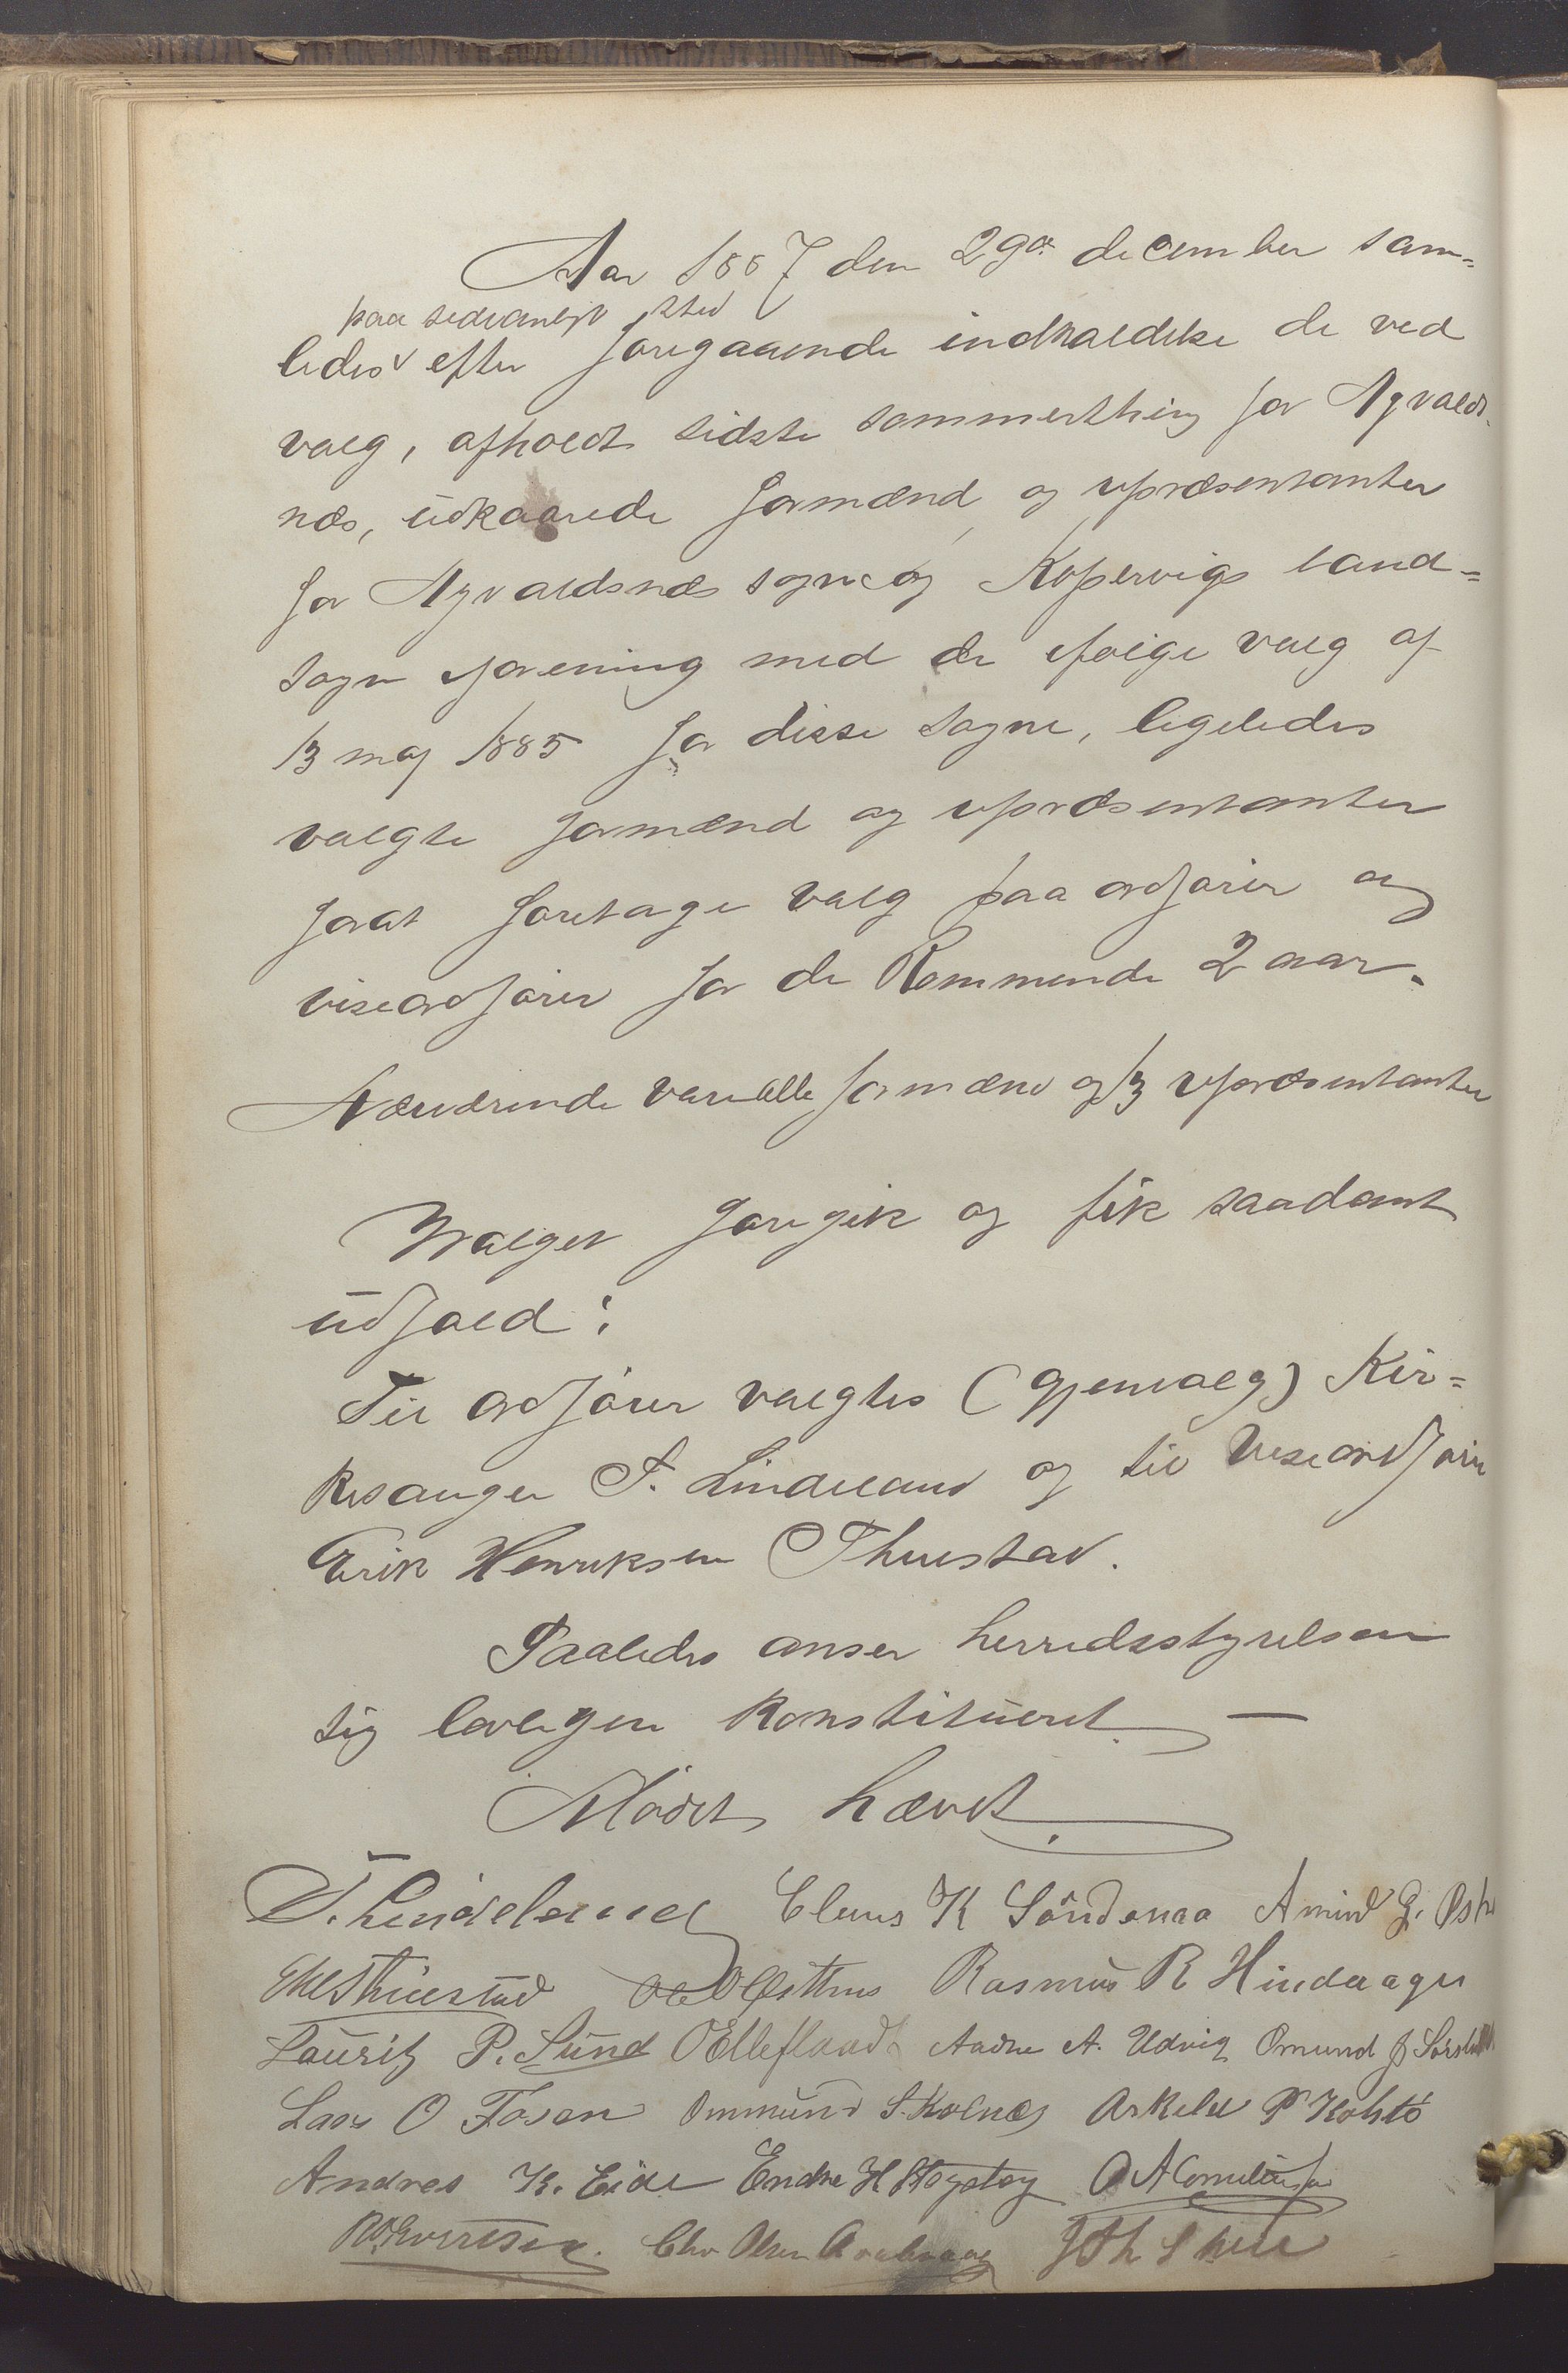 Aar 1887 den 29de december sam=
paa sedvanligt sted
ledes v efter foregaaende indkaldelse de ved
valg, afholdt sidste sommerthing for Agvalds-
næs, udkaarede formænd og repræsentanter
for Agvaldsnæs sogn og Kopervigs land=
sogn i forening med de ifølge valg af
13 maj 1885 for disse sogne, ligeledes
valgte formænd og repræsentanter
forat foretage valg paa ordfører og
viseordfører for de kommende 2 aar.
Nærværende vare alle formænd og 13 repræsentanter
Walget foregik og fik saadant
udfald:
Til ordfører valgtes (gjenvalg) Kir=
kesanger T. Lindeland og til viseordfører
Erik Henriksen Thuestad.
Saaledes anser herredsstyrelsen
sig lovligen konstitueret. —
Mødet hævet.
T. Lindeland Claus K Söndenaa Amund G.
EHThuestad Rasmus R Hindaager
Lauritz P. Lund OElleflaadt Aadne A. Udvig Omund
Lars O Fosen Ommund S. Kolnes Askeld P Kohtö
Andreas K. Eide Endre H Stogstøy
R. Evertsen. Chr Olsen